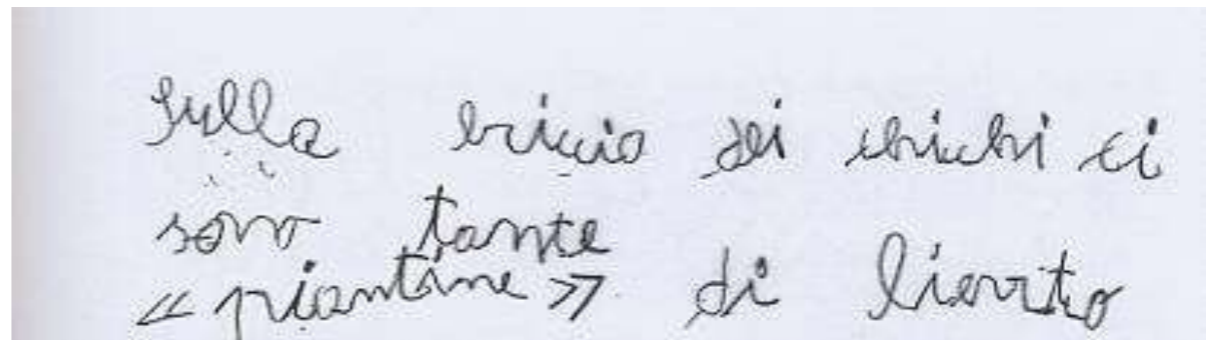 sulla dei chichi ci
sono tante
« piantine » di lievito